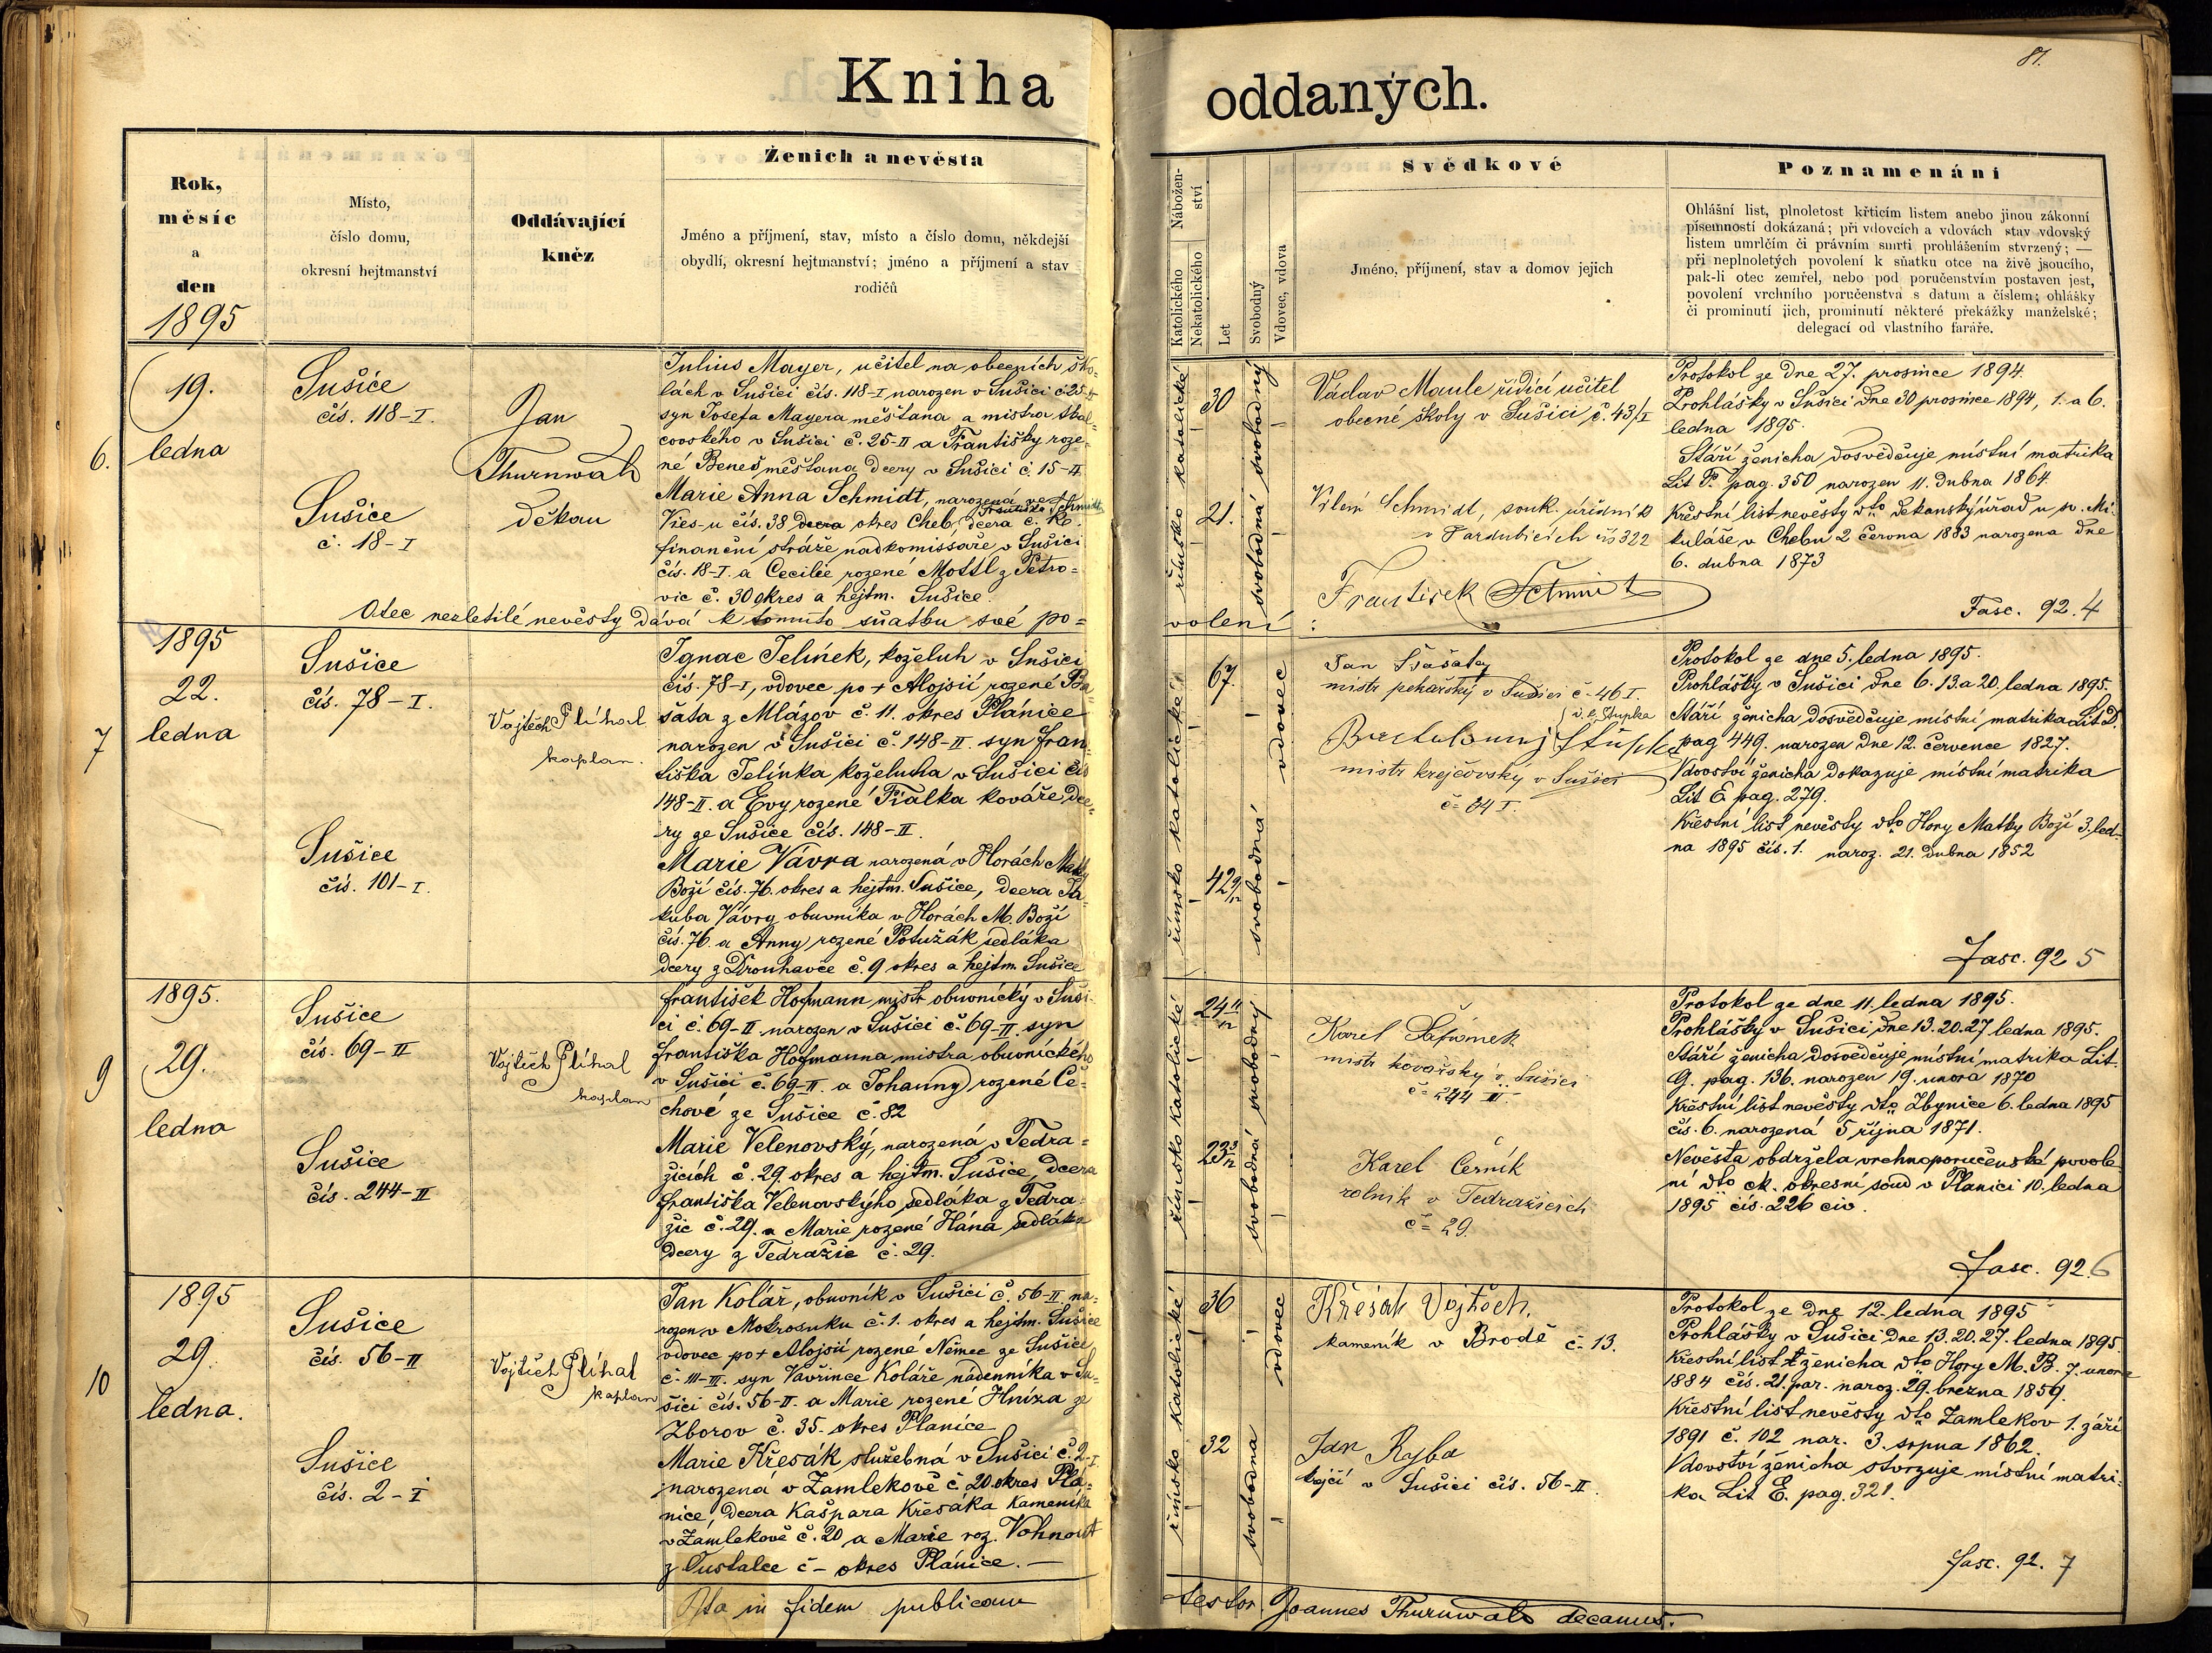 Kniha oddaných.
81.
Rok,
měsíc
a
den
1895
Místo,
číslo domu,
okresní hejtmanství
Oddávající
kněz
Ženich a nevěsta
Jméno a příjmení, stav, místo a číslo domu, někdejší
obydlí, okresní hejtmanství; jméno a příjmení a stav
rodičů
Nábožen-
ství
Katolického
Nekatolického
Let
Svobodný
Vdovec, vdova
Svědkové
Jméno, příjmení, stav a domov jejich
Poznamenání
Ohlášní list, plnoletost křticím listem anebo jinou zákonní
písemností dokázaná; při vdovcích a vdovách stav vdovský
listem umrlčím či právním smrti prohlášením stvrzený; —
při neplnoletých povolení k sňatku otce na živě jsoucího,
pak-li otec zemřel, nebo pod poručenstvím postaven jest,
povolení vrchního poručenstva s datum a číslem; ohlášky
či prominutí jich, prominutí některé překážky manželské;
delegací od vlastního faráře.
6.
19.
ledna
Sušice
čís. 118-I.
Sušice
č. 18-I
Jan
Thurnwald
děkan
Julius Mayer, učitel na obecních ško-
lách v Sušici čís. 118-I narozen v Sušici č 25-II
syn Josefa Mayera měšťana a mistra
covského v Sušici č. 25-II a Františky roze-
né Beneš měšťana dcery v Sušici č. 15-II.
Marie Anna Schmidt, narozená ve
Františka Schmidt
Vies-u čís. 38 dcera okres Cheb, dcera c. k.
finanční stráže nadkomissaře v Sušici
čís. 18-I. a Cecilie rozené Mottl z Petro-
vic č. 30 okres a hejtm. Sušice.
Otec nezletilé nevěsty dává k tomuto sňatku své po=
volení:
římsko katolické
30
21.
svobodný
svobodná
Václav Maule řídící učitel
obecné školy v Sušici č. 43/I
Vilém Schmidt, souk. úředník
v Pardubicích čís 322
František Schmidt
Protokol ze dne 27. prosince 1894.
Prohlášky v Sušici dne 30 prosince 1894, 1. a 6.
ledna 1895.
Stáří ženicha dosvědčuje místní matrika
Lit F. pag. 350 narozen 11. dubna 1864.
Křestní list nevěsty dto děkanský úřad u sv. Mi-
kuláše v Chebu 2 června 1883 narozena dne
6. dubna 1873
Fasc. 92. 4
7
1895
22.
ledna
Sušice
čís. 78-I.
Sušice
čís. 101-I.
Vojtěch Plíhal
kaplan.
Ignac Jelínek, koželuh v Sušici
čís. 78-I, vdovec po + Alojsii rozené Ba-
šata z Mlázov č. 11. okres Plánice
narozen v Sušici č. 148-II. syn Fran-
tiška Jelínka koželuha v Sušici čís
148-II. a Evy rozené Fialka kováře dce-
ry ze Sušice čís. 148-II.
Marie Vávra narozená v Horách Matky
Boží čís. 76. okres a hejtm. Sušice, dcera Ja-
kuba Vávry obuvníka v Horách M. Boží
čís. 76. a Anny rozené Potužák sedláka
dcery z Drouhavče č. 9 okres a hejtm. Sušice
římsko katolické
67.
42 9/12
vdovec
svobodná
Jan Šťastný
mistr pekařský v Sušici č. 46 I.
v. l. Stupka
Bartoloměj Stupka
mistr krejčovský v Sušici
č. 34 I.
Protokol ze dne 5. ledna 1895.
Prohlášky v Sušici dne 6. 13. a 20. ledna 1895.
Stáří ženicha dosvědčuje místní matrika Lit D.
pag 449. narozen dne 12. července 1827.
Vdovství ženicha dokazuje místní matrika
Lit E. pag. 279.
Křestní list nevěsty dto Hory Matky Boží 3. led-
na 1895 čís. 1. naroz. 21. dubna 1852
Fasc. 92 5
9
1895.
29.
ledna
Sušice
čís. 69-II
Sušice
čís. 244-II
Vojtěch Plíhal
kaplan
František Hofmann mistr obuvnický v Suši-
ci č. 69-II. narozen v Sušici č. 69-II. syn
Františka Hofmanna mistra obuvnického
v Sušici č. 69-II. a Johanny rozené Če-
chové ze Sušice č. 82
Marie Velenovský, narozená v Tedra=
žicích č. 29. okres a hejtm. Sušice, dcera
Františka Velenovskýho sedláka z Tedra-
žic č. 29. a Marie rozené Hána sedláka
dcery z Tedražic č. 29.
římsko katolické
24 11/12
23 3/12
svobodný
svobodná
Karel
mistr kovářský v Sušici
č. 244 II.
Karel Černík
rolník v Tedražicích
č. 29.
Protokol ze dne 11. ledna 1895.
Prohlášky v Sušici dne 13. 20. 27 ledna 1895.
Stáří ženicha dosvědčuje místní matrika Lit.
G. pag. 136. narozen 19. unora 1870
Křestní list nevěsty dto Zbynice 6. ledna 1895
čís. 6. narozená 5 října 1871.
Nevěsta obdržela vrchnoporučenské povole-
ní dto ck. okresní soud v Plánici 10. ledna
1895 čís. 226 civ.
Fasc. 92. 6
10
1895
29.
ledna.
Sušice
čís. 56-II
Sušice
čís. 2-I
Vojtěch Plíhal
kaplan
Jan Kolář, obuvník v Sušici č. 56-II na-
rozen v Mokrosuku č. 1. okres a hejtm. Sušice
vdovec po + Alojsii rozené Němec ze Sušice
č. 111-III. syn Vavřince Koláře nádenníka v Su-
šici čís. 56-II. a Marie rozené Hníza ze
Zborov č. 35. okres Plánice
Marie Křesák služebná v Sušici č. 2-I.
narozená v Zamlekově č. 20. okres Plá-
nice, dcera Kašpara Křesáka kameníka
v Zamlekově č. 20 a Marie roz. Vohnout
z Oustalče č - okres Plánice. —
římsko katolické
36
32
vdovec
svobodna
Křesák Vojtěch,
kameník v Brodě č. 13.
Jan Ryba
krejčí v Sušici čís. 56-II.
Protokol ze dne 12. ledna 1895
Prohlášky v Sušici dne 13. 20. 27. ledna 1895.
Křestní list ženicha dto Hory M. B. 7. unora
1884 čís. 21. par. naroz. 29. března 1859.
Křestní list nevěsty dto Zamlekov 1. září
1891 č. 102 nar. 3. srpna 1862.
Vdovství ženicha stvrzuje místní matri-
ka Lit E. pag. 321.
Fasc. 92. 7
Ita in fidem publicam testor Joannes Thurnwald decanus.